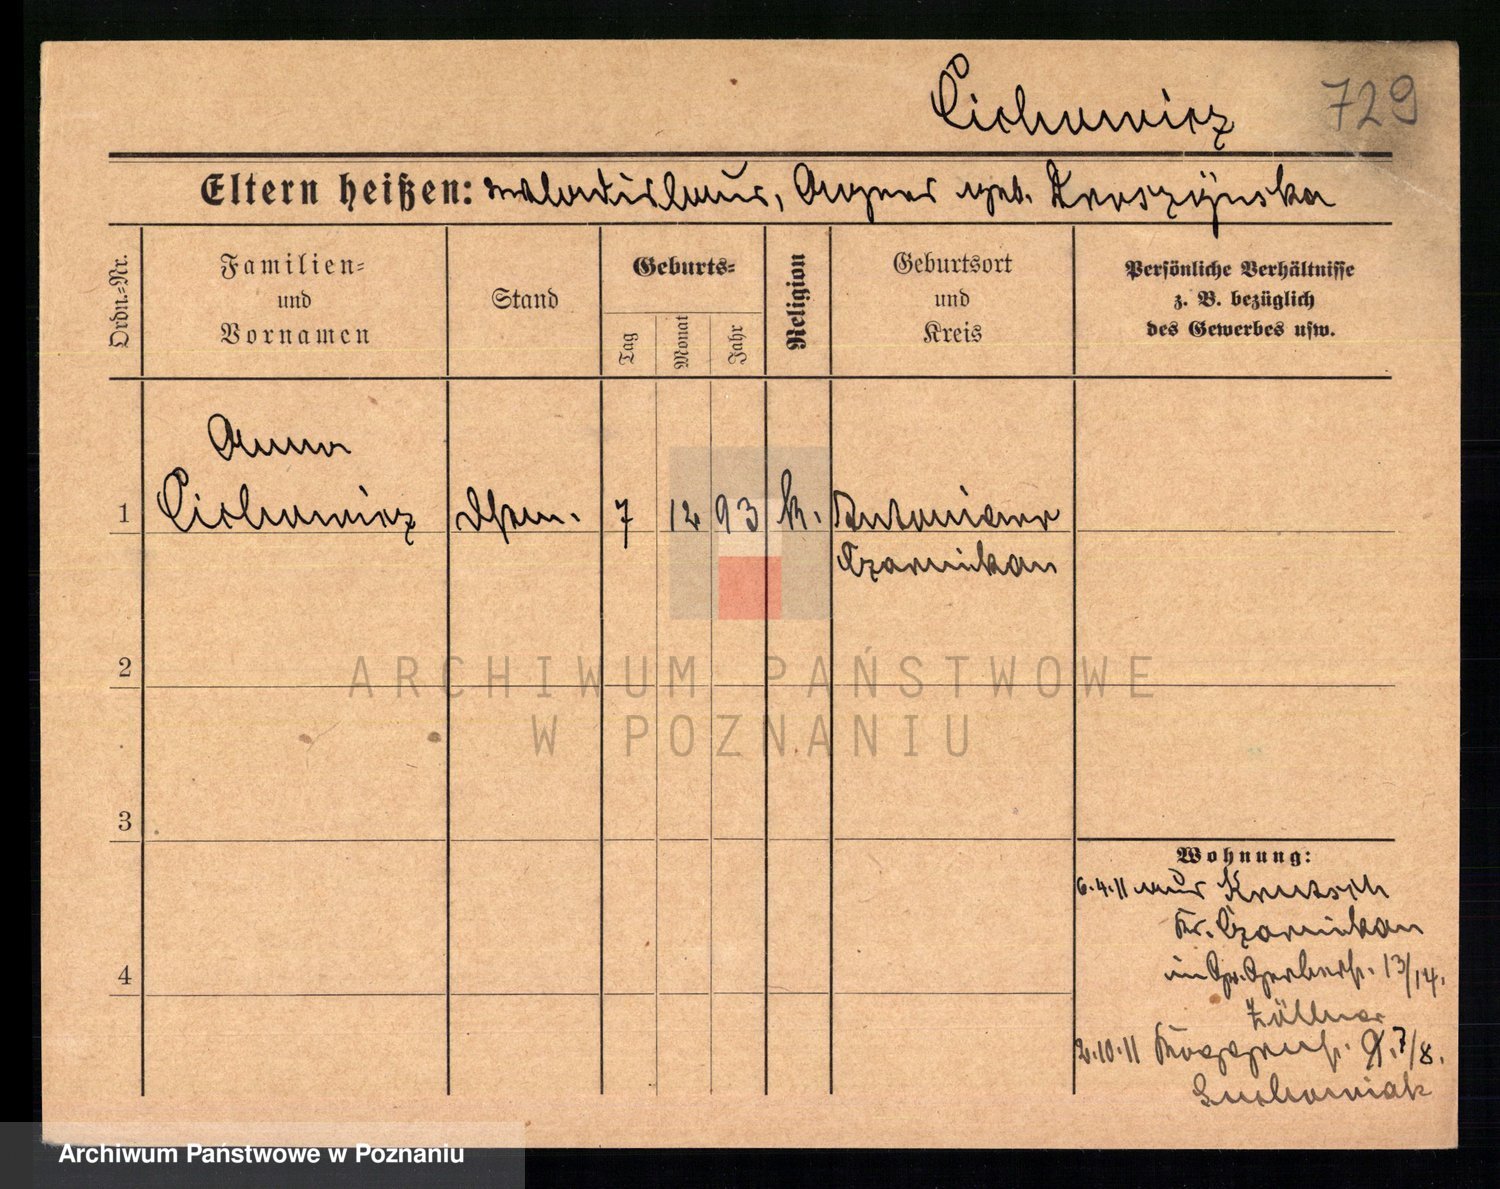 Cichowicz 729
Eltern heißen: Wladislaus, Agnes geb. Kroszynska
Ordn.-Nr.
Familien-
und
Vornamen
Stand
Geburts-
Tag
Monat
Jahr
Religion
Geburtsort
und
Kreis
Persönliche Verhältnisse
z. B. bezüglich
des Gewerbes usw.
Anna
1 Cichowicz 7 12 93 k.
Czarnikau
2
3
4
ARCHIWUM PAŃSTWOWE
W POZNANIU
Wohnung:
6.4.11 aus
Kr. Czarnikau
in Gr. Gerberstr. 13/14.
Zöllner
2.10.11 7/8.
Suchowiak
Archiwum Państwowe w Poznaniu